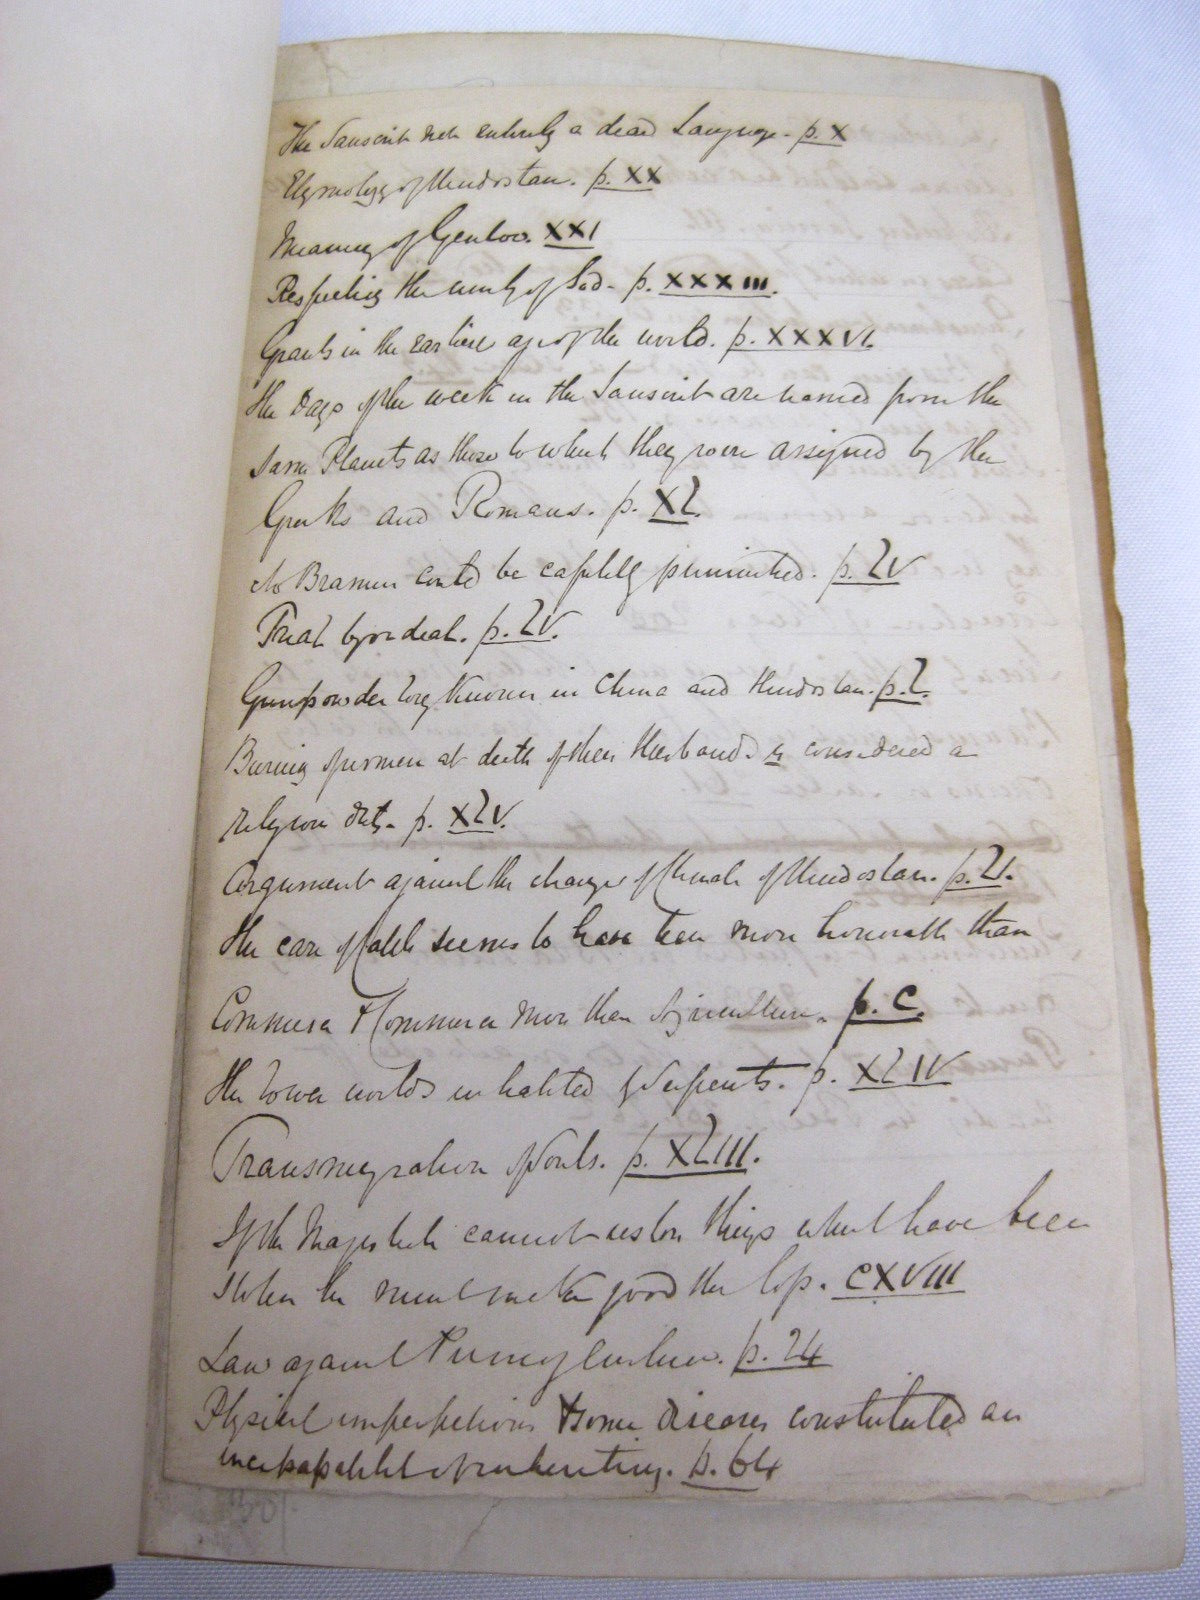 The Sanscrit not entirely a dead Language. p. X
Etymology of Hindostan. p. XX
Meaning of Gentoo. XXI
Respecting the unity of God. p. XXXIII.
Giants in the earliest age of the world. p. XXXVI.
The Days of the week in the Sanscrit are named from the
same Planets as those to which they were assigned by the
Greeks and Romans. p. XL.
No Bramin could be capitally punished. p. LV
Trial by ordeal. p. LV.
Gunpowder long known in China and Hindostan. p. L.
Burning of women at death of their Husbands is considered a
religious duty. p. XLV.
Argument against the change of of Hindostan. p. LI.
The care of cattle seems to have been more honorable than
Commerce & Commerce more than Agriculture. p. C.
The lower worlds inhabited by Serpents. p. XLIV
Transmigration of Souls. p. XLIII.
If the Magistrate cannot restore things which have been
stolen he must make good the loss. CXVIII
Law against p. 24
Physical imperfections & some diseases constituted an
incapability of inheriting. p. 64